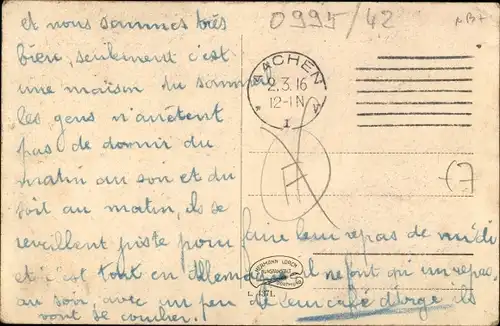 et nous sommes très
bien, seulement c'est
une maison du sommeil
les gens n'arrêtent
pas de dormir du
matin au soir et du
soit au matin, ils se
reveillent juste pour faire leur repas de midi
et c'est tout en Allemagne il ne font qu'un repas,
au soir, avec un peu de leur café d'orge ils
vont se coucher.
0995/42
AACHEN
2.3.16
12-1N
* 1
HERMANN LORCH
KUNSTANSTALT